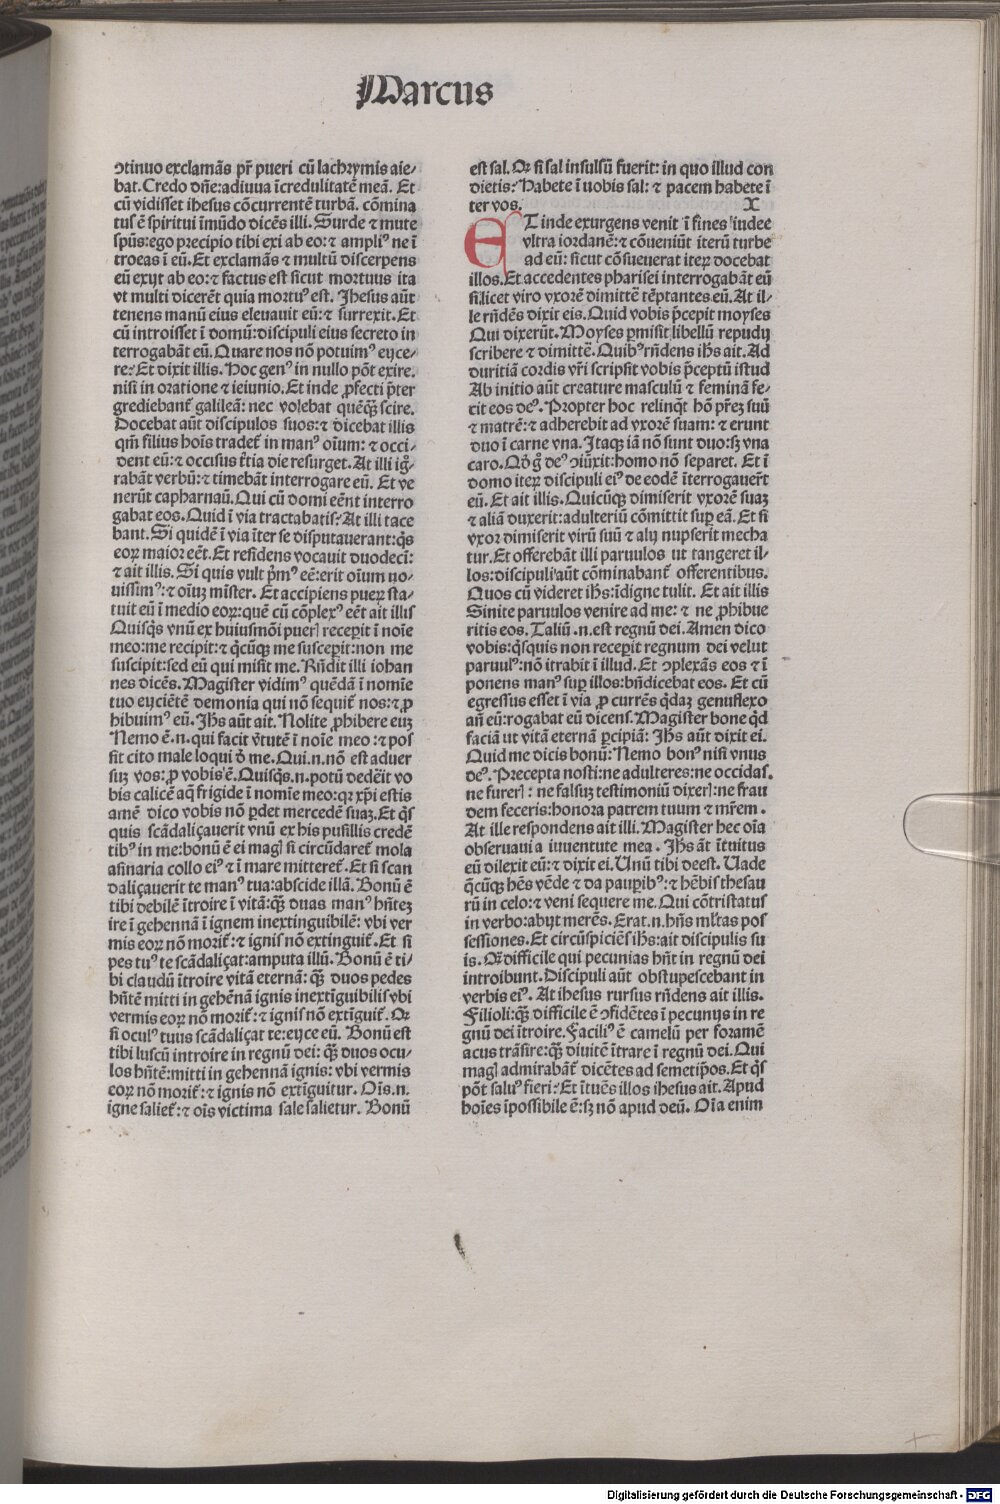 Marcus
ↄtinuo exclamās pr̄ pueri cū lachrymis aie⸗
bat. Credo dn̄e:adiuua īcredulitatē meā. Et
cū vidisset ihesus cōcurrentē turbā. cōmina
tus̓ ē spiritui īmūdo dicēs illi. Surde ⁊ mute
spūs:ego precipio tibi exi ab eo:⁊ ampliꝰ ne ī
troeas ī eū. Et exclamās ⁊ multū discerpens
eū exyt ab eo:⁊ factus est sicut mortuus ita
vt multi dicerēt quia mortuꝰ est. Jhesus aūt
tenens manū eius eleuauit eū:⁊ surrexit. Et
cū introisset ī domū:discipuli eius secreto in
terrogabāt eū. Quare nos nō potuimꝰ eyce⸗
re? Et dixit illis. Hoc genꝰ in nullo pōt exire.
nisi in oratione ⁊ ieiunio. Et inde ꝓfecti p̄ter
grediebant̄ galileā: nec volebat quēqꝫ̄ scire.
Docebat aūt discipulos suos:⁊ dicebat illis
qm̄ filius hoīs tradet̄ in manꝰ oīum: ⁊ occi⸗
dent eū:⁊ occisus t̄tia die resurget. At illi ig̊⸗
rabāt verbū:⁊ timebāt interrogare eū. Et ve
nerūt capharnaū. Qui cū domi eēnt interro
gabat eos. Quid ī via tractabatis? At illi tace
bant. Si quidē ī via īter se disputauerant:qͥs
eoꝝ maior eēt. Et residens vocauit duodecī:
⁊ ait illis. Si quis vult p̄mꝰ eē:erit oīum no⸗
uissimꝰ:⁊ oīuꝫ mīster. Et accipiens pueꝝ sta⸗
tuit eū ī medio eoꝝ:quē cū cōplexꝰ eēt ait illis
Quisqͥs vnū ex huiusmōi pueꝝ receꝑit ī noīe
meo:me recipit:⁊ qͥcūqꝫ me susceꝑit:non me
suscipit:sed eū qui misit me. Rn̄dit illi iohan
nes dicēs. Magister vidimꝰ quēdā ī nomīe
tuo eyciētē demonia qui nō sequit̄ nos:⁊ ꝓ
hibuimꝰ eū. Jh̄s aūt ait. Nolite ꝓhibere euꝫ
Nemo ē.n.qui facit v̄tutē ī noīe meo :⁊ pos
sit cito male loqui d̄ me. Qui.n.nō est aduer
suꝫ vos:ꝓ vobis ē. Quisqͥs.n.potū dedēit vo
bis calicē aq̄ frigide ī nomīe meo:qꝛ xp̄i estis
amē dico vobis nō ꝑdet mercedē suaꝫ. Et qͥs
quis scādaliçauerit vnū ex his pusillis credē
tibꝰ in me:bonū ē ei magꝭ si circūdaret̄ mola
asinaria collo eiꝰ ⁊ ī mare mitteret̄. Et si scan
daliçauerit te manꝰ tua:abscide illā. Bonū ē
tibi debilē ītroire ī vitā:qꝫ̄ duas manꝰ hn̄teꝫ
ire ī gehennā ī ignem inextinguibilē: vbi ver
mis eoꝝ nō morit̄:⁊ ignis nō extinguit̄. Et si
pes tuꝰ te scādaliçat:amputa illū. Bonū ē ti⸗
bi claudū ītroire vitā eternā: qꝫ̄ duos pedes
hn̄tē mitti in gehēnā ignis inextīguibilis vbi
vermis eoꝝ nō morit̄:⁊ ignis nō extīguit̄. Qꝛ
si oculꝰ tuus scādaliçat te:eyce eū. Bonū est
tibi luscū introire in regnū dei: qꝫ̄ duos ocu⸗
los hn̄tē:mitti in gehennā ignis: vbi vermis
eoꝝ nō morit̄:⁊ ignis nō extīguitur. Oīs.n.
igne saliet̄:⁊ oīs victima sale salietur. Bonū
est sal. Qꝛ si sal insulsū fuerit: in quo illud con
dietis? Habete ī uobis sal: ⁊ pacem habete ī
ter vos. X
ET inde exurgens venit ī fines iudee
vltra iordanē:⁊ cōueniūt iterū turbe
ad eū: sicut cōsueuerat iteꝝ docebat
illos. Et accedentes pharisei interrogabāt eū
si licet viro vxorē dimittē tēptantes eū. At il⸗
le rn̄dēs dixit eis. Quid vobis p̄cepit moyses
Qui dixerūt. Moyses ꝑmisit libellū repudy
scribere ⁊ dimittē. Quibꝰ rn̄dens ih̄s ait. Ad
duritiā cordis vr̄i scripsit vobis p̄ceptū istud
Ab initio aūt creature masculū ⁊ feminā fe⸗
cit eos deꝰ. Propter hoc relinqͥt hō pr̄eꝫ suū
⁊ matrē:⁊ adherebit ad vxorē suam: ⁊ erunt
duo ī carne vna. Jtaqꝫ iā nō sunt duo:sꝫ vna
caro. Qd̄ g̊ deꝰ ↄiūxit:homo nō separet. Et ī
domo iteꝝ discipuli eiꝰ de eodē īterrogauer̄t
eū. Et ait illis. Quicūqꝫ dimiserit vxorē suaꝫ
⁊ aliā duxerit:adulteriū cōmittit suꝑ eā. Et si
vxor dimiserit virū suū ⁊ aly nupserit mecha
tur. Et offerebāt illi paruulos ut tangeret il⸗
los:discipuli aūt cōminabant̄ offerentibus.
Quos cū videret ih̄s:īdigne tulit. Et ait illis
Sinite paruulos venire ad me: ⁊ ne ꝓhibue
ritis eos. Taliū .n.est regnū dei. Amen dico
vobis:qͥsquis non receꝑit regnum dei velut
paruulꝰ:nō ītrabit ī illud. Et ↄplexās eos ⁊ ī
ponens manꝰ suꝑ illos:bn̄dicebat eos. Et cū
egressus esset ī via ꝓcurrēs qͥdaꝫ genuflexo
an̄ eū:rogabat eū dicens. Magister bone qͥd
faciā ut vitā eternā ꝑcipiā? Jh̄s aūt dixit ei.
Quid me dicis bonū? Nemo bonꝰ nisi vnus
deꝰ. Precepta nosti:ne adulteres:ne occidas.
ne fureꝝ: ne falsuꝫ testimoniū dixeꝝ:ne frau
dem feceris:honora patrem tuum ⁊ mr̄em .
At ille respondens ait illi. Magister hec oīa
obseruaui a iuuentute mea . Jh̄s āt ītuitus
eū dilexit eū:⁊ dixit ei. Unū tibi deest. Uade
qͥcūqꝫ hēs vēde ⁊ da pauꝑibꝰ:⁊ hēbis thesau
rū in celo:⁊ veni sequere me. Qui cōtristatus
in verbo:abyt merēs. Erat.n.hn̄s ml̄tas pos
sessiones. Et circūspiciēs ih̄s:ait discipulis su
is. Qꝫ̄ difficile qui pecunias hn̄t in regnū dei
introibunt. Discipuli aūt obstupescebant in
verbis eiꝰ. At ihesus rursus rn̄dens ait illis.
Filioli:qꝫ̄ difficile ē ↄfidētes ī pecunys in re
gnū dei ītroire. Faciliꝰ ē camelū per foramē
acus trāsire:qꝫ̄ diuitē ītrare ī regnū dei. Qui
magꝭ admirabāt̄ dicētes ad semetip̄os. Et qͥs
pōt saluꝰ fieri? Et ītuēs illos ihesus ait. Apud
hoīes īpossibile ē:sꝫ nō apud deū. Oīa enim
Digitalisierung gefördert durch die Deutsche Forschungsgemeinschaft - DFG